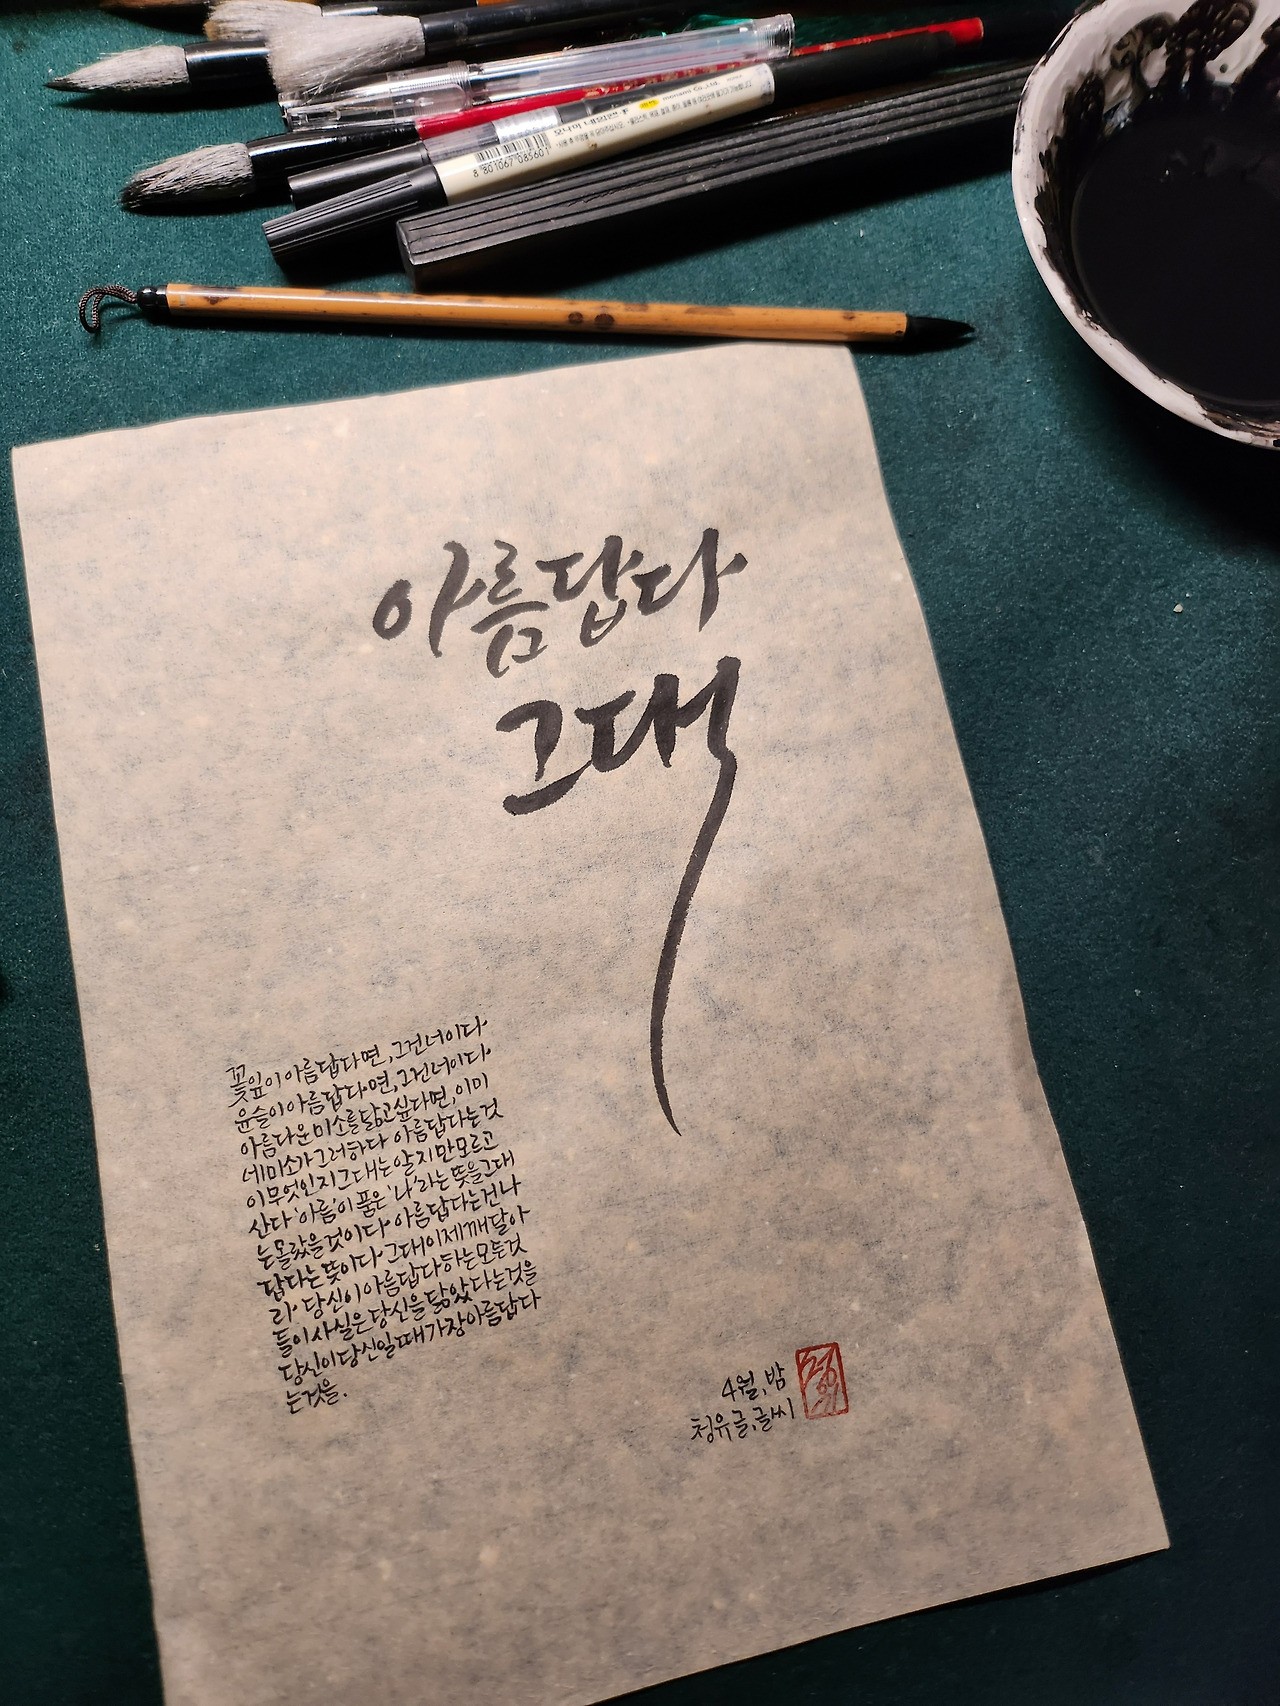 8 801067 085601
아름답다
그대
꽃잎이 아름답다면, 그건 너이다.
윤슬이 아름답다면, 그건 너이다.
아름다운 미소를 닮고 싶다면, 이미
네 미소가 그러하다 아름답다는 것
이 무엇인지 그대는 알지만 모르고
산다 '아름'이 품은 '나'라는 뜻을 그대
는 몰랐을 것이다. 아름답다는 건 나
답다는 뜻이다. 그대 이제 깨달아
라. 당신이 아름답다 하는 모든 것
들이 사실은 당신을 닮았다는 것을
당신이 당신일 때 가장 아름답다
는 것을.
4월, 밤
청유 글, 글씨